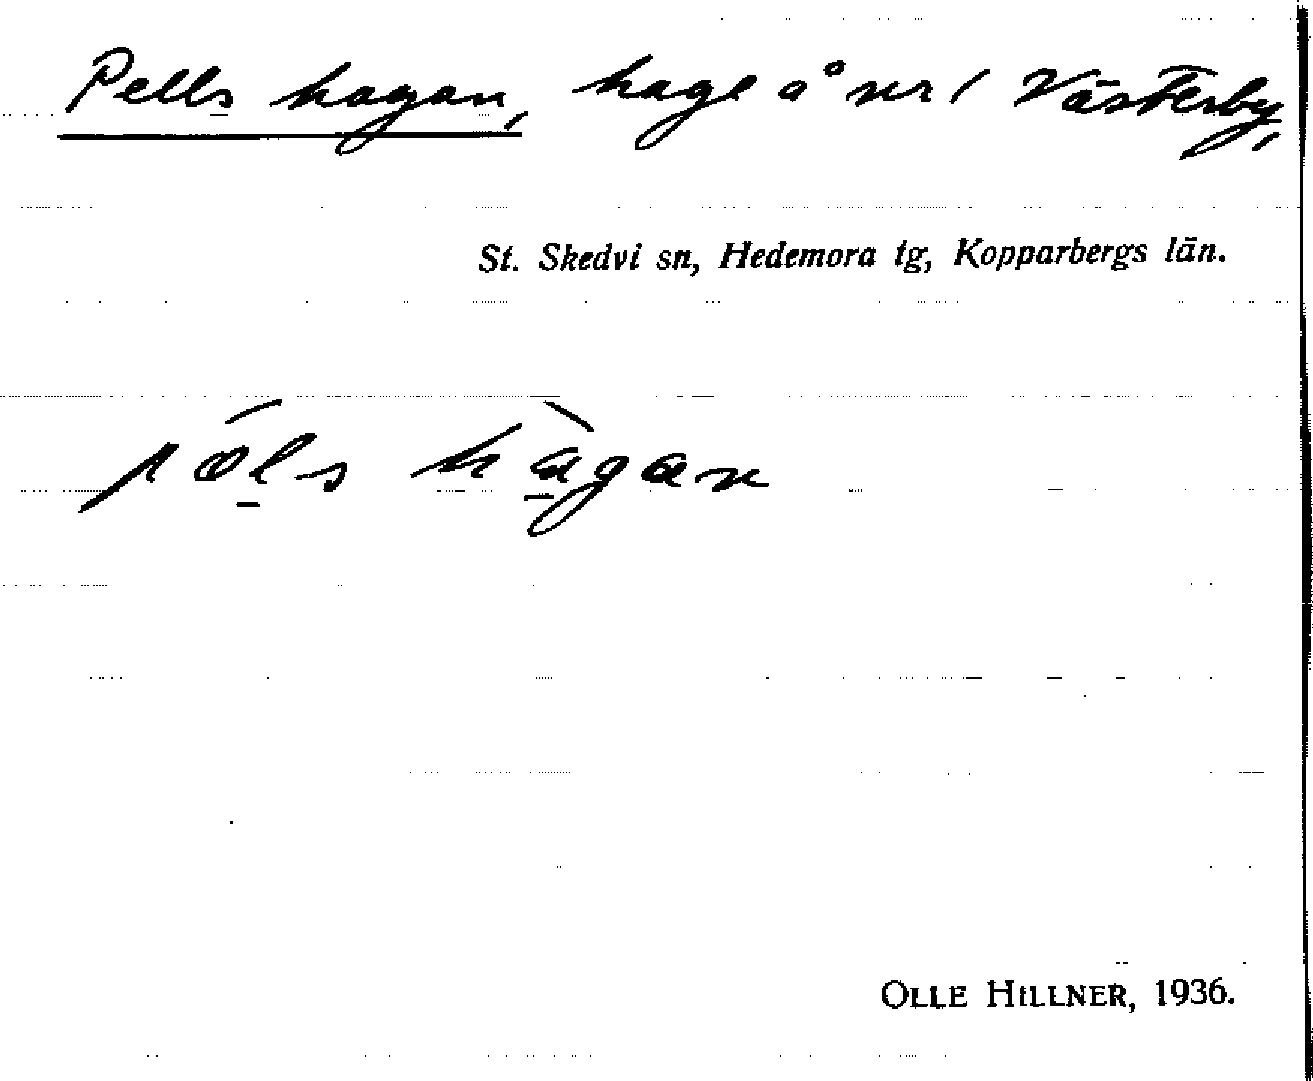 Pells hagan, hage å nr 1 Västerby,
St. Skedvi sn, Hedemora tg, Kopparbergs län.
pǽ̠ls hà̠gan
OLLE HILLNER, 1936.